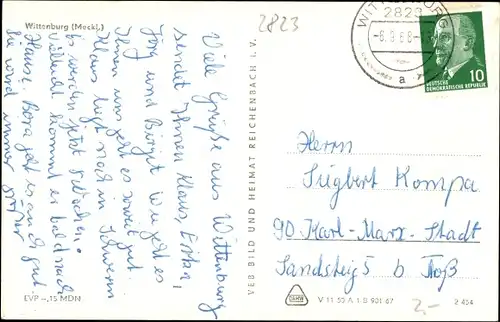 Wittenburg (Meckl.)
2823
Viele Grüße aus Wittenburg
sendet Ihnen Klaus, Erika,
Jörg und Birgit. Wie geht es
Ihnen uns geht es soweit gut.
Klaus liegt noch in Schwerin
es werden jetzt Wochen.
Vielleicht kommt er bald nach
Hause. Dora geht es auch gut
Sie wird immer
EVP –,15 MDN
VEB BILD UND HEIMAT REICHENBACH I. V.
WITTENBURG
2823
a
10
DEUTSCHE
DEMOKRATISCHE REPUBLIK
Herrn
Siegbert Kompa
90 Karl-Marx-Stadt
Sandsteig 5 b Floß
V 11 50 A 1 B 901 67
2.-
2 454